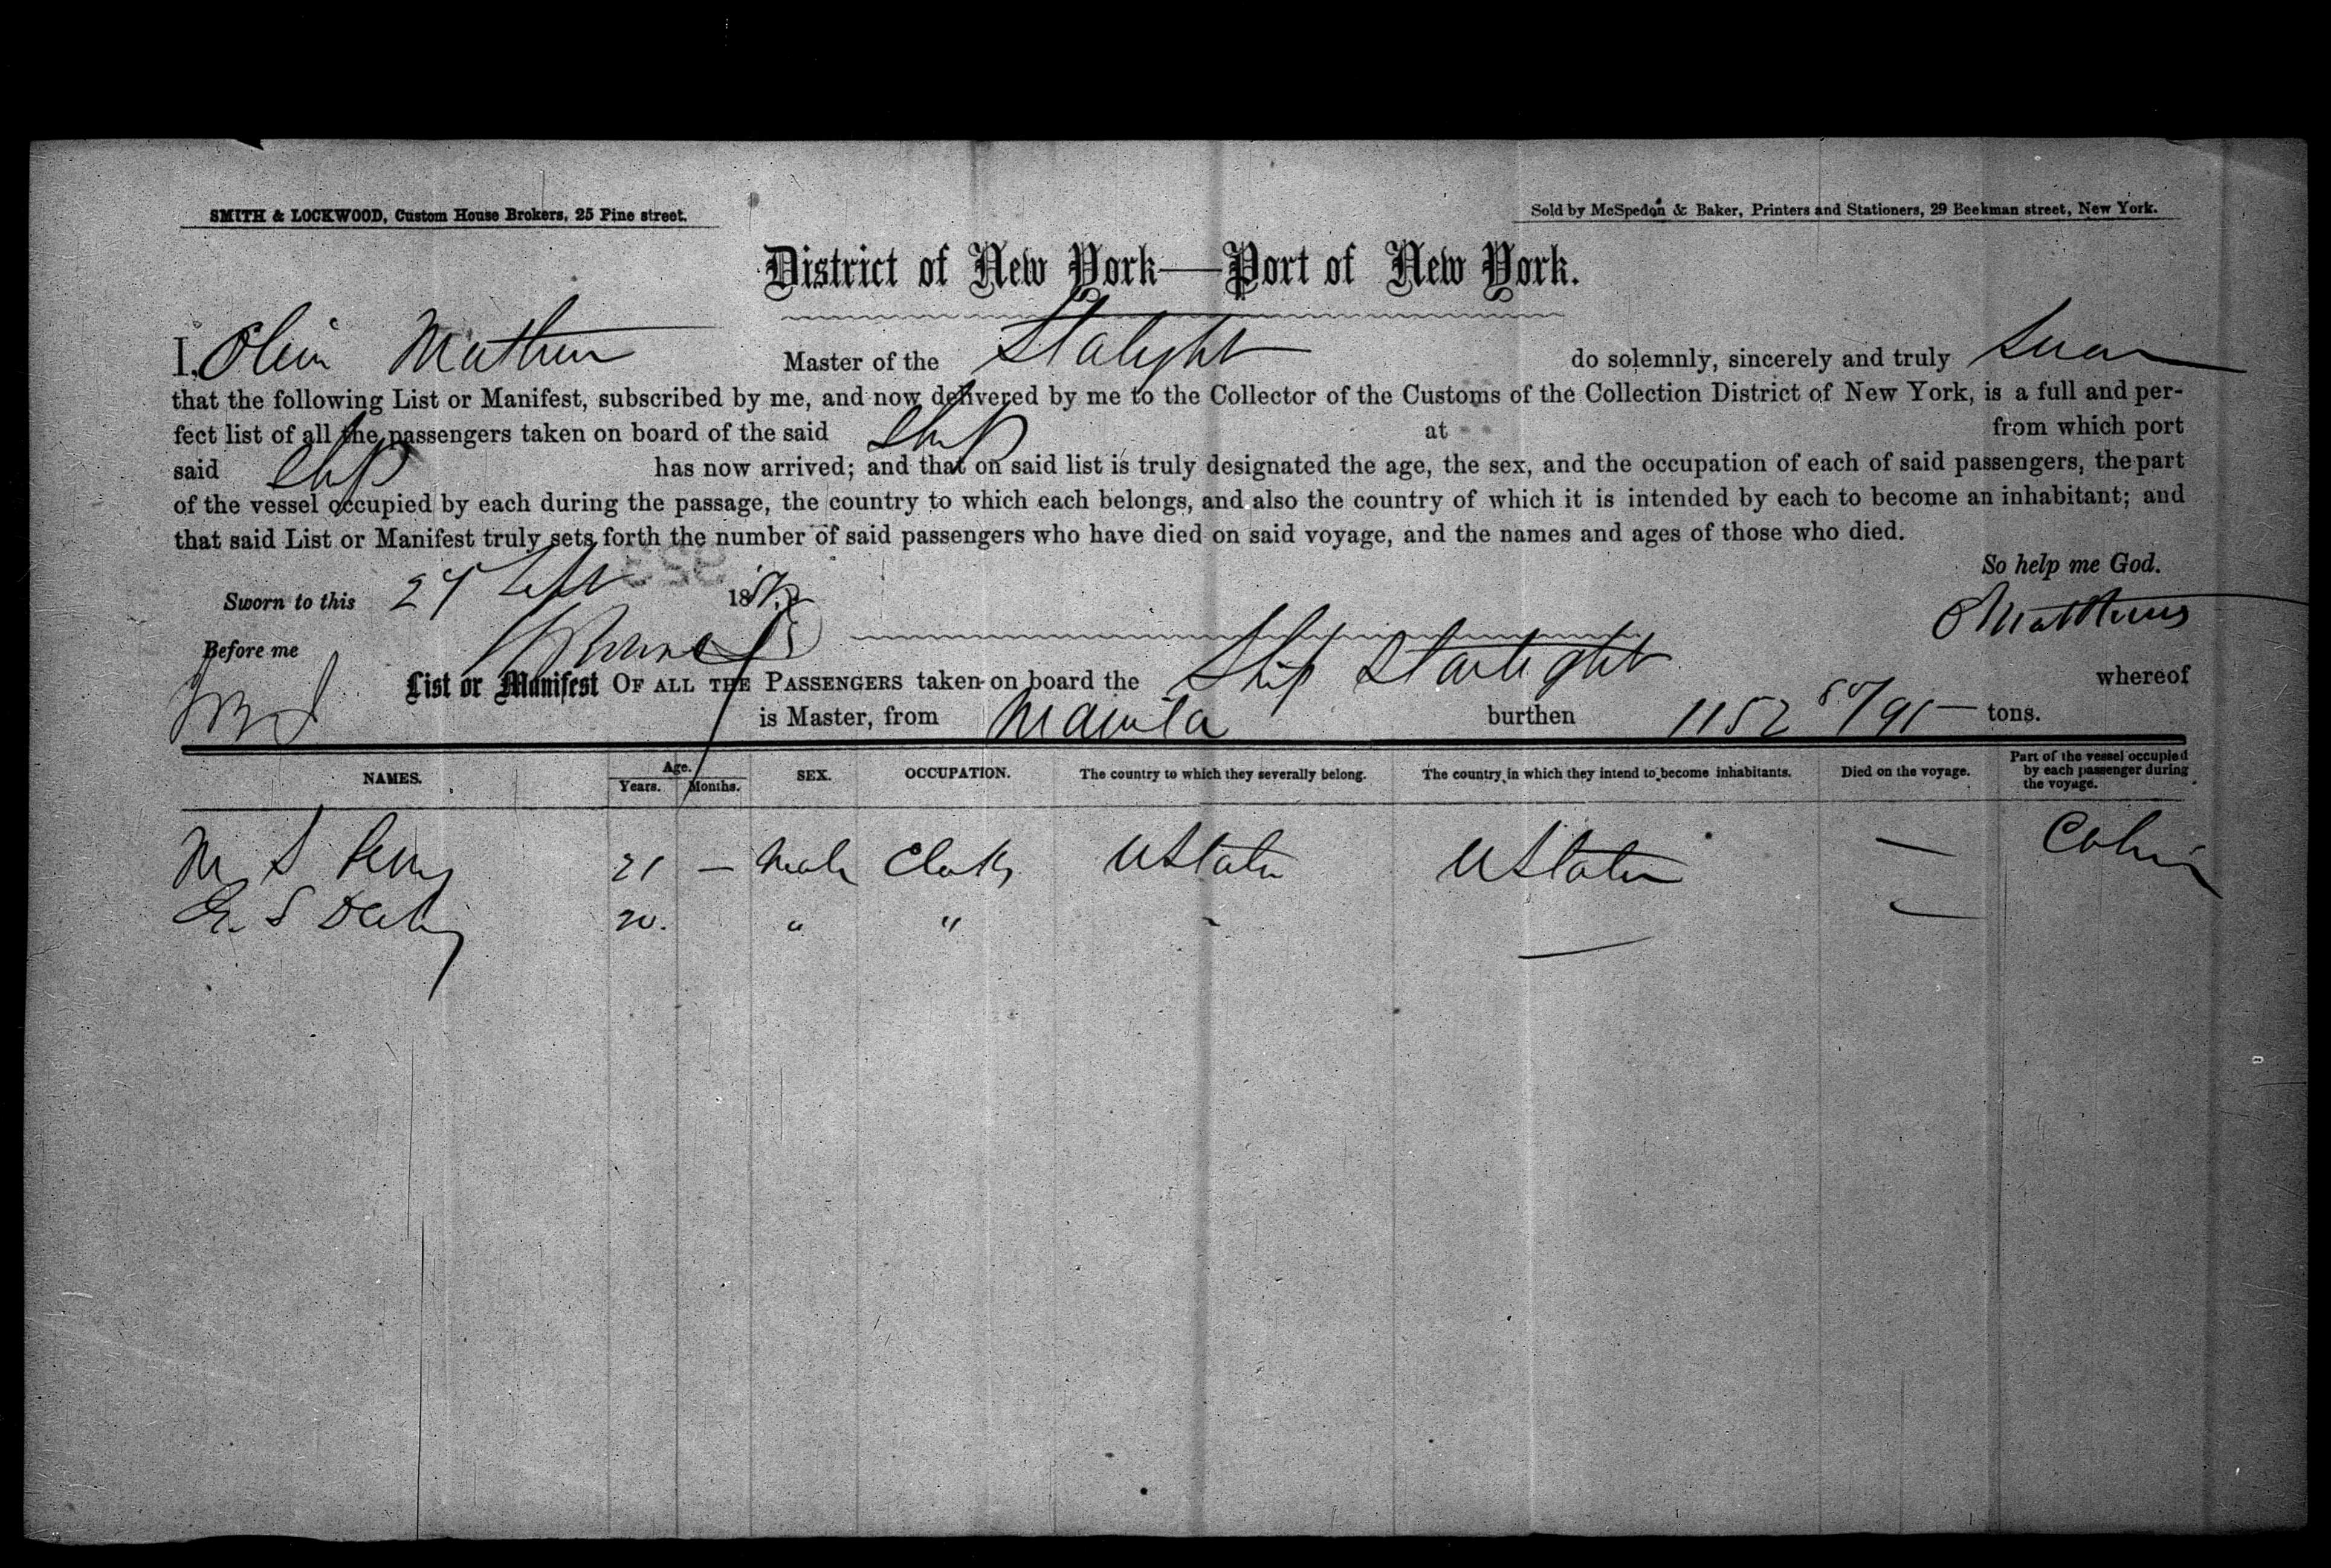 SMITH & LOCKWOOD, Custom House Brokers, 25 Pine street.
Sold by McSpedon & Baker, Printers and Stationers, 29 Beekman street, New York.
District of New York—Port of New York.
I, Master of the Starlight do solemnly, sincerely and truly Swear
that the following List or Manifest, subscribed by me, and now delivered by me to the Collector of the Customs of the Collection District of New York, is a full and per-
fect list of all the passengers taken on board of the said Ship at from which port
said Ship has now arrived; and that on said list is truly designated the age, the sex, and the occupation of each of said passengers, the part
of the vessel occupied by each during the passage, the country to which each belongs, and also the country of which it is intended by each to become an inhabitant; and
that said List or Manifest truly sets forth the number of said passengers who have died on said voyage, and the names and ages of those who died.
So help me God.
Sworn to this 185
O Matthews
Before me
List or Manifest OF ALL THE PASSENGERS taken on board the Ship Starlight whereof
is Master, from Manila burthen 1152 /95 tons.
NAMES. Age. Years. Months. SEX. OCCUPATION. The country to which they severally belong. The country in which they intend to become inhabitants. Died on the voyage. Part of the vessel occupied by each passenger during the voyage.
M S 21 — Male U States U States — Cabin
S 20. " " " — —